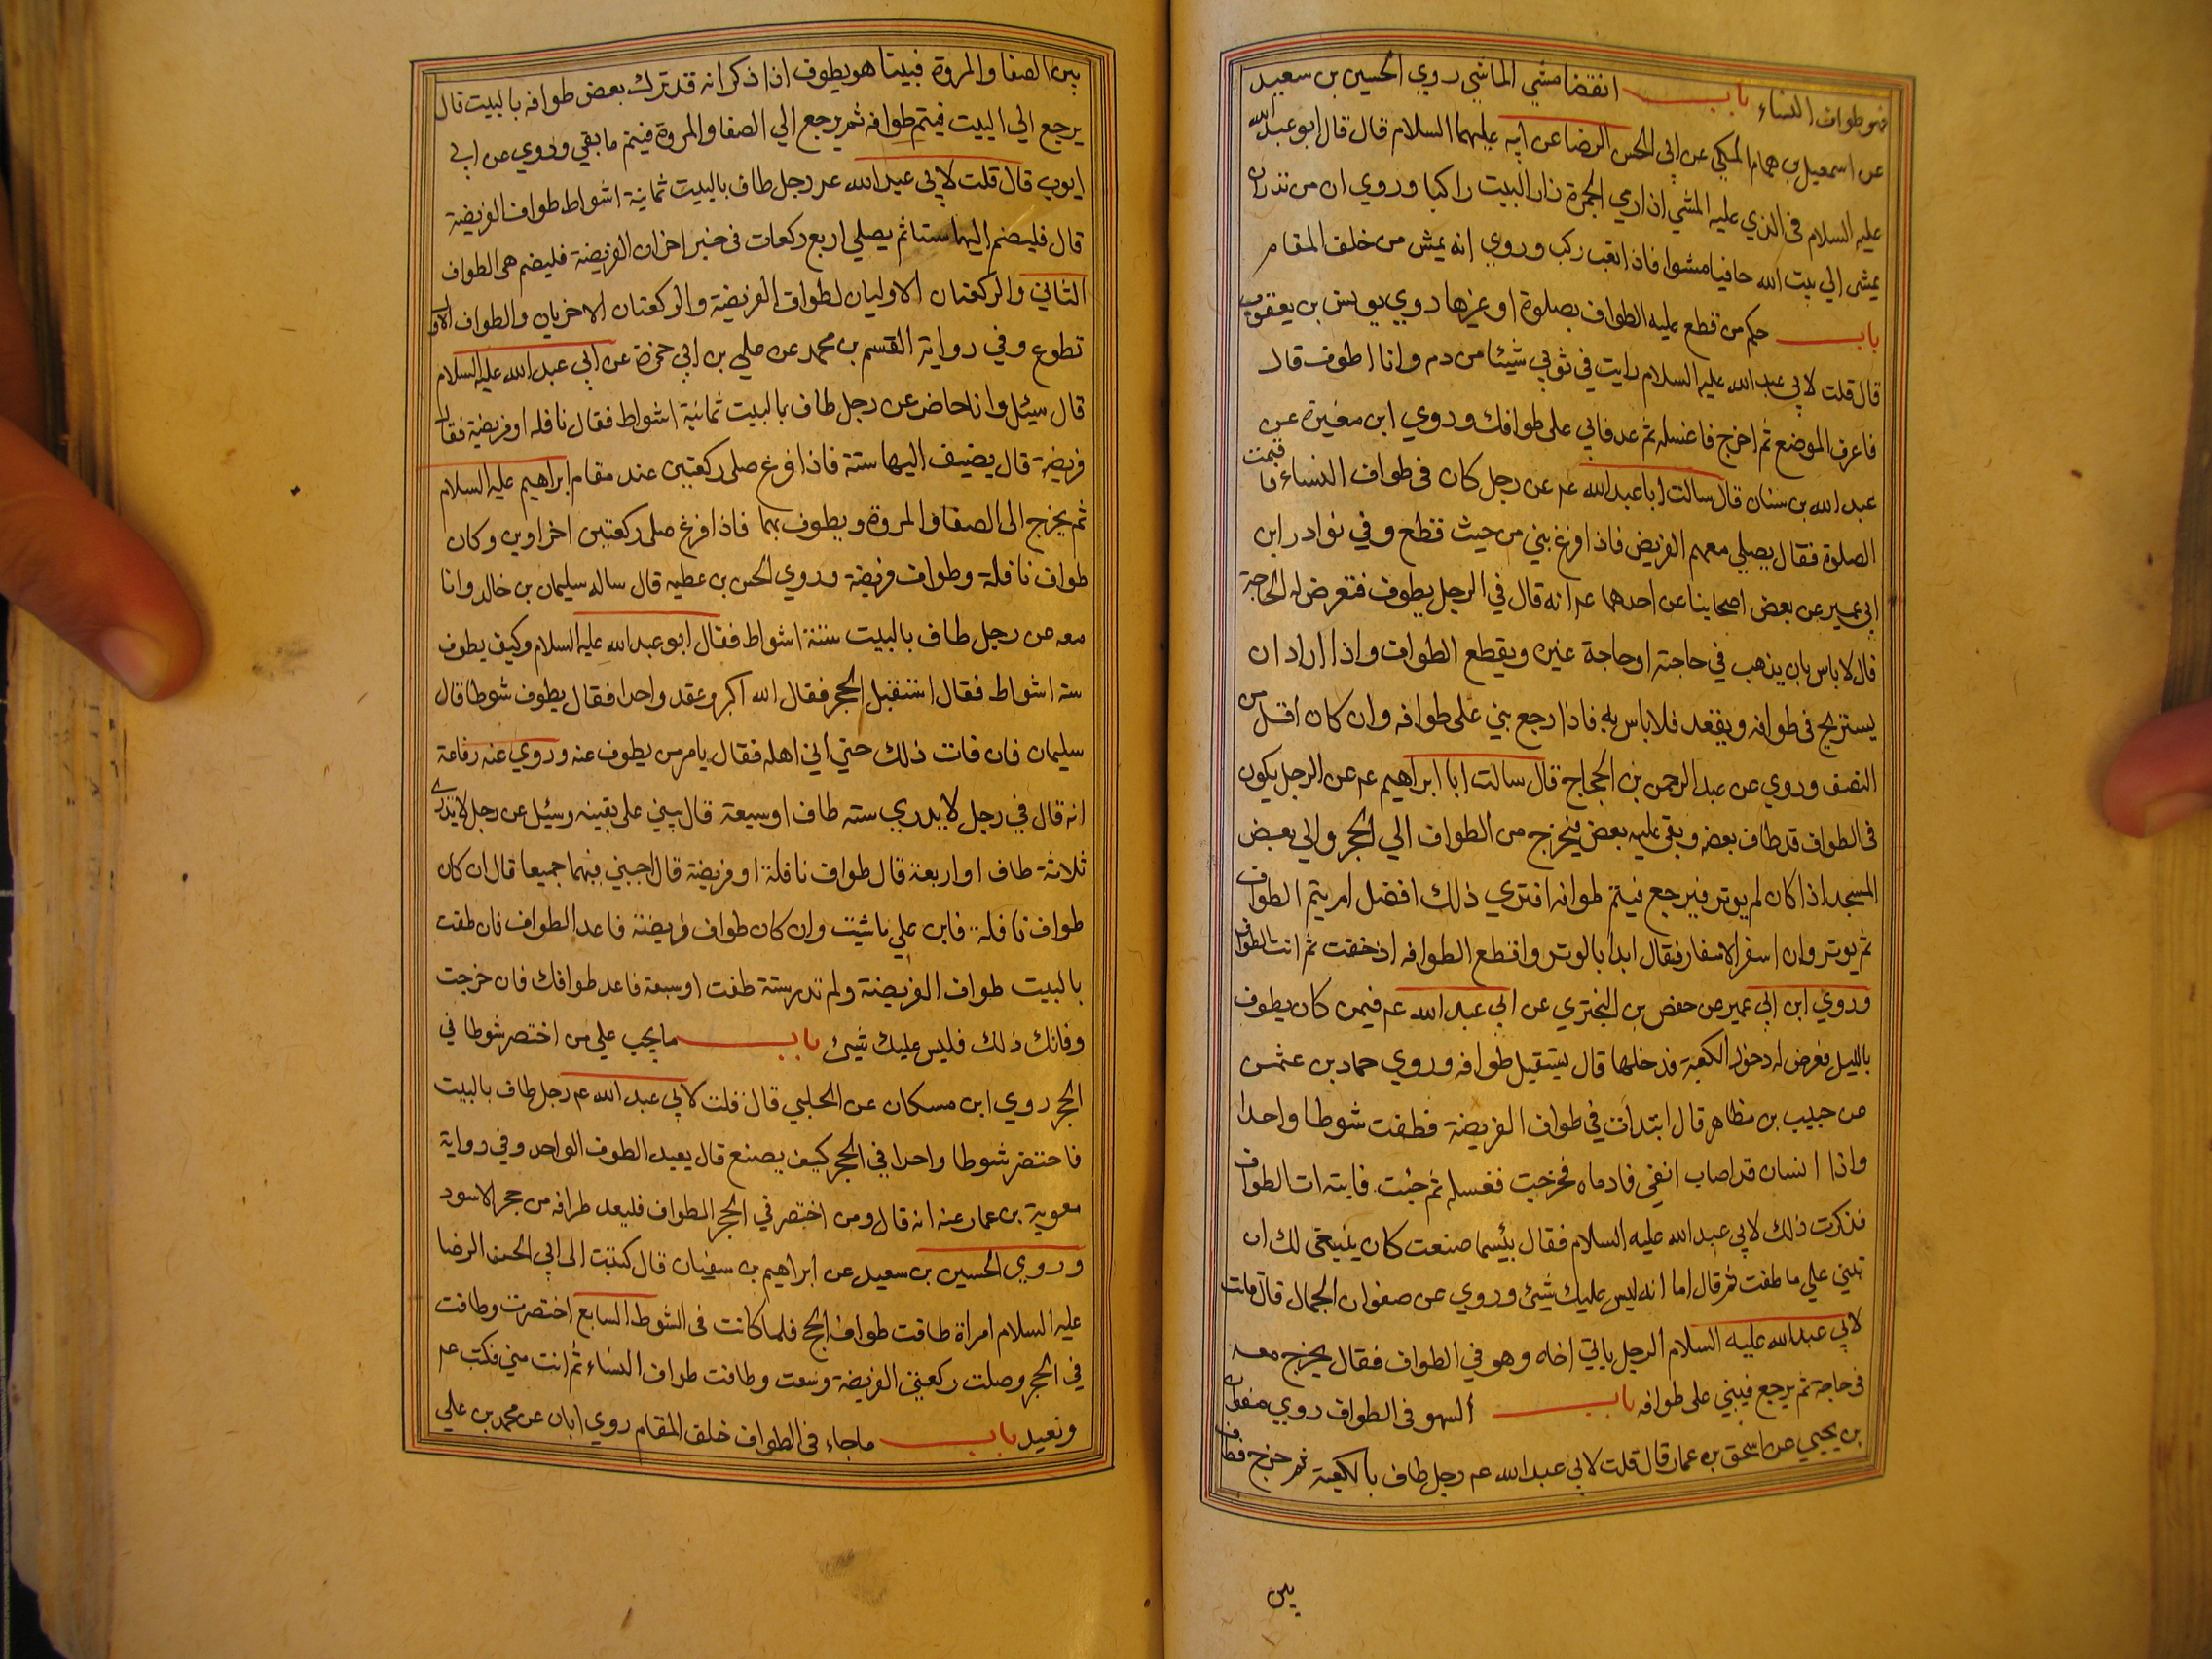 فهو طواف النساء باب انقضا مشي الماشي روي الحسين بن سعيد
عن اسمعيل بن همام المكي عن ابي الحسن الرضا عن ابيه عليهما السلام قال قال ابو عبد الله
عليه السلام في الذي عليه المشي اذا رمي الجمرة زار البيت راكبا وروي ان من نذر ان
يمشي الي بيت الله حافيا مشوا فاذا تعب ركب وروي انه يمشي من خلف المقام
باب حكم من قطع عليه الطواف بصلوة او غيرها روي يونس بن يعقوب
قال قلت لابي عبد الله عليه السلام رايت في ثوبي شيئا من دم وانا اطوف قال
فاعرف الموضع ثم اخرج فاغسله ثم عد فابن على طوافك وروي ابن مغيرة عن
عبد الله بن سنان قال سالت ابا عبد الله عم عن رجل كان في طواف النساء فاقيمت
الصلوة فقال يصلي معهم الفريض فاذا فرغ بني من حيث قطع وفي نوادر ابن
ابي عمير عن بعض اصحابنا عن احدهما عم انه قال في الرجل يطوف فتعرض له الحاجة
قال لا باس بان يذهب في حاجته او حاجة غيره ويقطع الطواف واذا اراد ان
يستريح في طوافه ويقعد فلا باس به فاذا رجع بني على طوافه وان كان اقل من
النصف وروي عن عبد الرحمن بن الحجاج قال سالت ابا ابراهيم عم عن الرجل يكون
في الطواف قد طاف بعضه وبقي عليه بعض فيخرج من الطواف الي الحجر والي بعض
المسجد اذا كان لم يوتر فيرجع فيتم طوافه افتري ذلك افضل ام يتم الطواف
ثم يوتر وان اسفر الاسفار فقال ابدا بالوتر واقطع الطوافه اذ خفت ثم ائت الطواف
وروي ابن ابي عمير عن حفص بن البختري عن ابي عبد الله عم فيمن كان يطوف
بالليل فعرض له دخول الكعبة فدخلها قال يستقبل طوافه وروي حماد بن عثمن
عن حبيب بن مظاهر قال ابتدات في طواف الفريضة فطفت شوطا واحدا
واذا انسان قد اصاب انفي فادماه فخرجت فغسله ثم جئت فابتدات الطواف
فذكرت ذلك لابي عبد الله عليه السلام فقال بئسما صنعت كان ينبغي لك ان
تبني علي ما طفت ثم قال اما انه ليس عليك شيئ وروي عن صفوان الجمال قال قلت
لابي عبد الله عليه السلام الرجل ياتي اخاه وهو في الطواف فقال يخرج معه
في حاجة ثم يرجع فيبني على طوافه باب السهو في الطواف روي صفوان
بن يحيي عن اسحق بن عمار قال قلت لابي عبد الله عم رجل طاف بالكعبة ثم خرج فطاف
بين
بين الصفا والمروة فبينا هو يطوف اذا ذكر انه قد ترك بعض طوافه بالبيت قال
يرجع الي البيت فيتم طوافه ثم يرجع الي الصفا والمروة فيتم ما بقي وروي عن ابي
ايوب قال قلت لابي عبد الله عم رجل طاف بالبيت ثمانية اشواط طواف الفريضة
قال فليضم اليها ستا ثم يصلي اربع ركعات في خبر اخر ان الفريضة فليضم هي الطواف
الثاني والركعتان الاوليان لطواف الفريضة والركعتان الاخريان والطواف الاول
تطوع وفي رواية القسم بن محمد عن علي بن ابي حمزة عن ابي عبد الله عليه السلام
قال سيئل وانا حاضر عن رجل طاف بالبيت ثمانية اشواط فقال نافله او فريضة فقال
فريضة قال يضيف اليها ستة فاذا فرغ صلى ركعتين عند مقام ابراهيم عليه السلام
ثم يخرج الى الصفا والمروة ويطوف بهما فاذا فرغ صلى ركعتين اخراوين وكان
طواف نافلة وطواف فريضة وروي الحسن بن عطيه قال ساله سليمان بن خالد وانا
معه عن رجل طاف بالبيت ستة اشواط فقال ابو عبد الله عليه السلام وكيف يطوف
سته اشواط فقال استقبل الحجر فقال الله اكبر وعقد واحدا فقال يطوف شوطا قال
سليمان فان فات ذلك حتي اتي اهله فقال يامر من يطوف عنه وروي عنه رفاعة
انه قال في رجل لا يدري سته طاف او سبعة قال يبني على يقينه وسيئل عن رجل لا يدري
ثلاثة طاف او اربعة قال طواف نافلة او فريضة قال اجبني فيهما جميعا قال ان كان
طواف نافلة فابن علي ما شئت وان كان طواف فريضة فاعد الطواف فان طفت
بالبيت طواف الفريضة ولم تدر ستة طفت او سبعة فاعد طوافك فان خرجت
وفاتك ذلك فليس عليك شيئ باب ما يجب علي من اختصر شوطا في
الحجر روي ابن مسكان عن الحلبي قال قلت لابي عبد الله عم رجل طاف بالبيت
فاختصر شوطا واحدا في الحجر كيف يصنع قال يعيد الطوف الواحد وفي رواية
معوية بن عمار عنه انه قال ومن اختصر في الحجر الطواف فليعد طرافه من حجر الاسود
وروي الحسين بن سعيد عن ابراهيم بن سفيان قال كتبت الى ابي الحسن الرضا
عليه السلام امراة طافت طواف الحج فلما كانت في الشوط السابع اختصرت وطافت
في الحجر وصلت ركعتي الفريضة وسعت وطافت طواف النساء ثم اتت مني فكتب عم
وتعيد باب ما جاء في الطواف خلف المقام روي ابان عن محمد بن علي